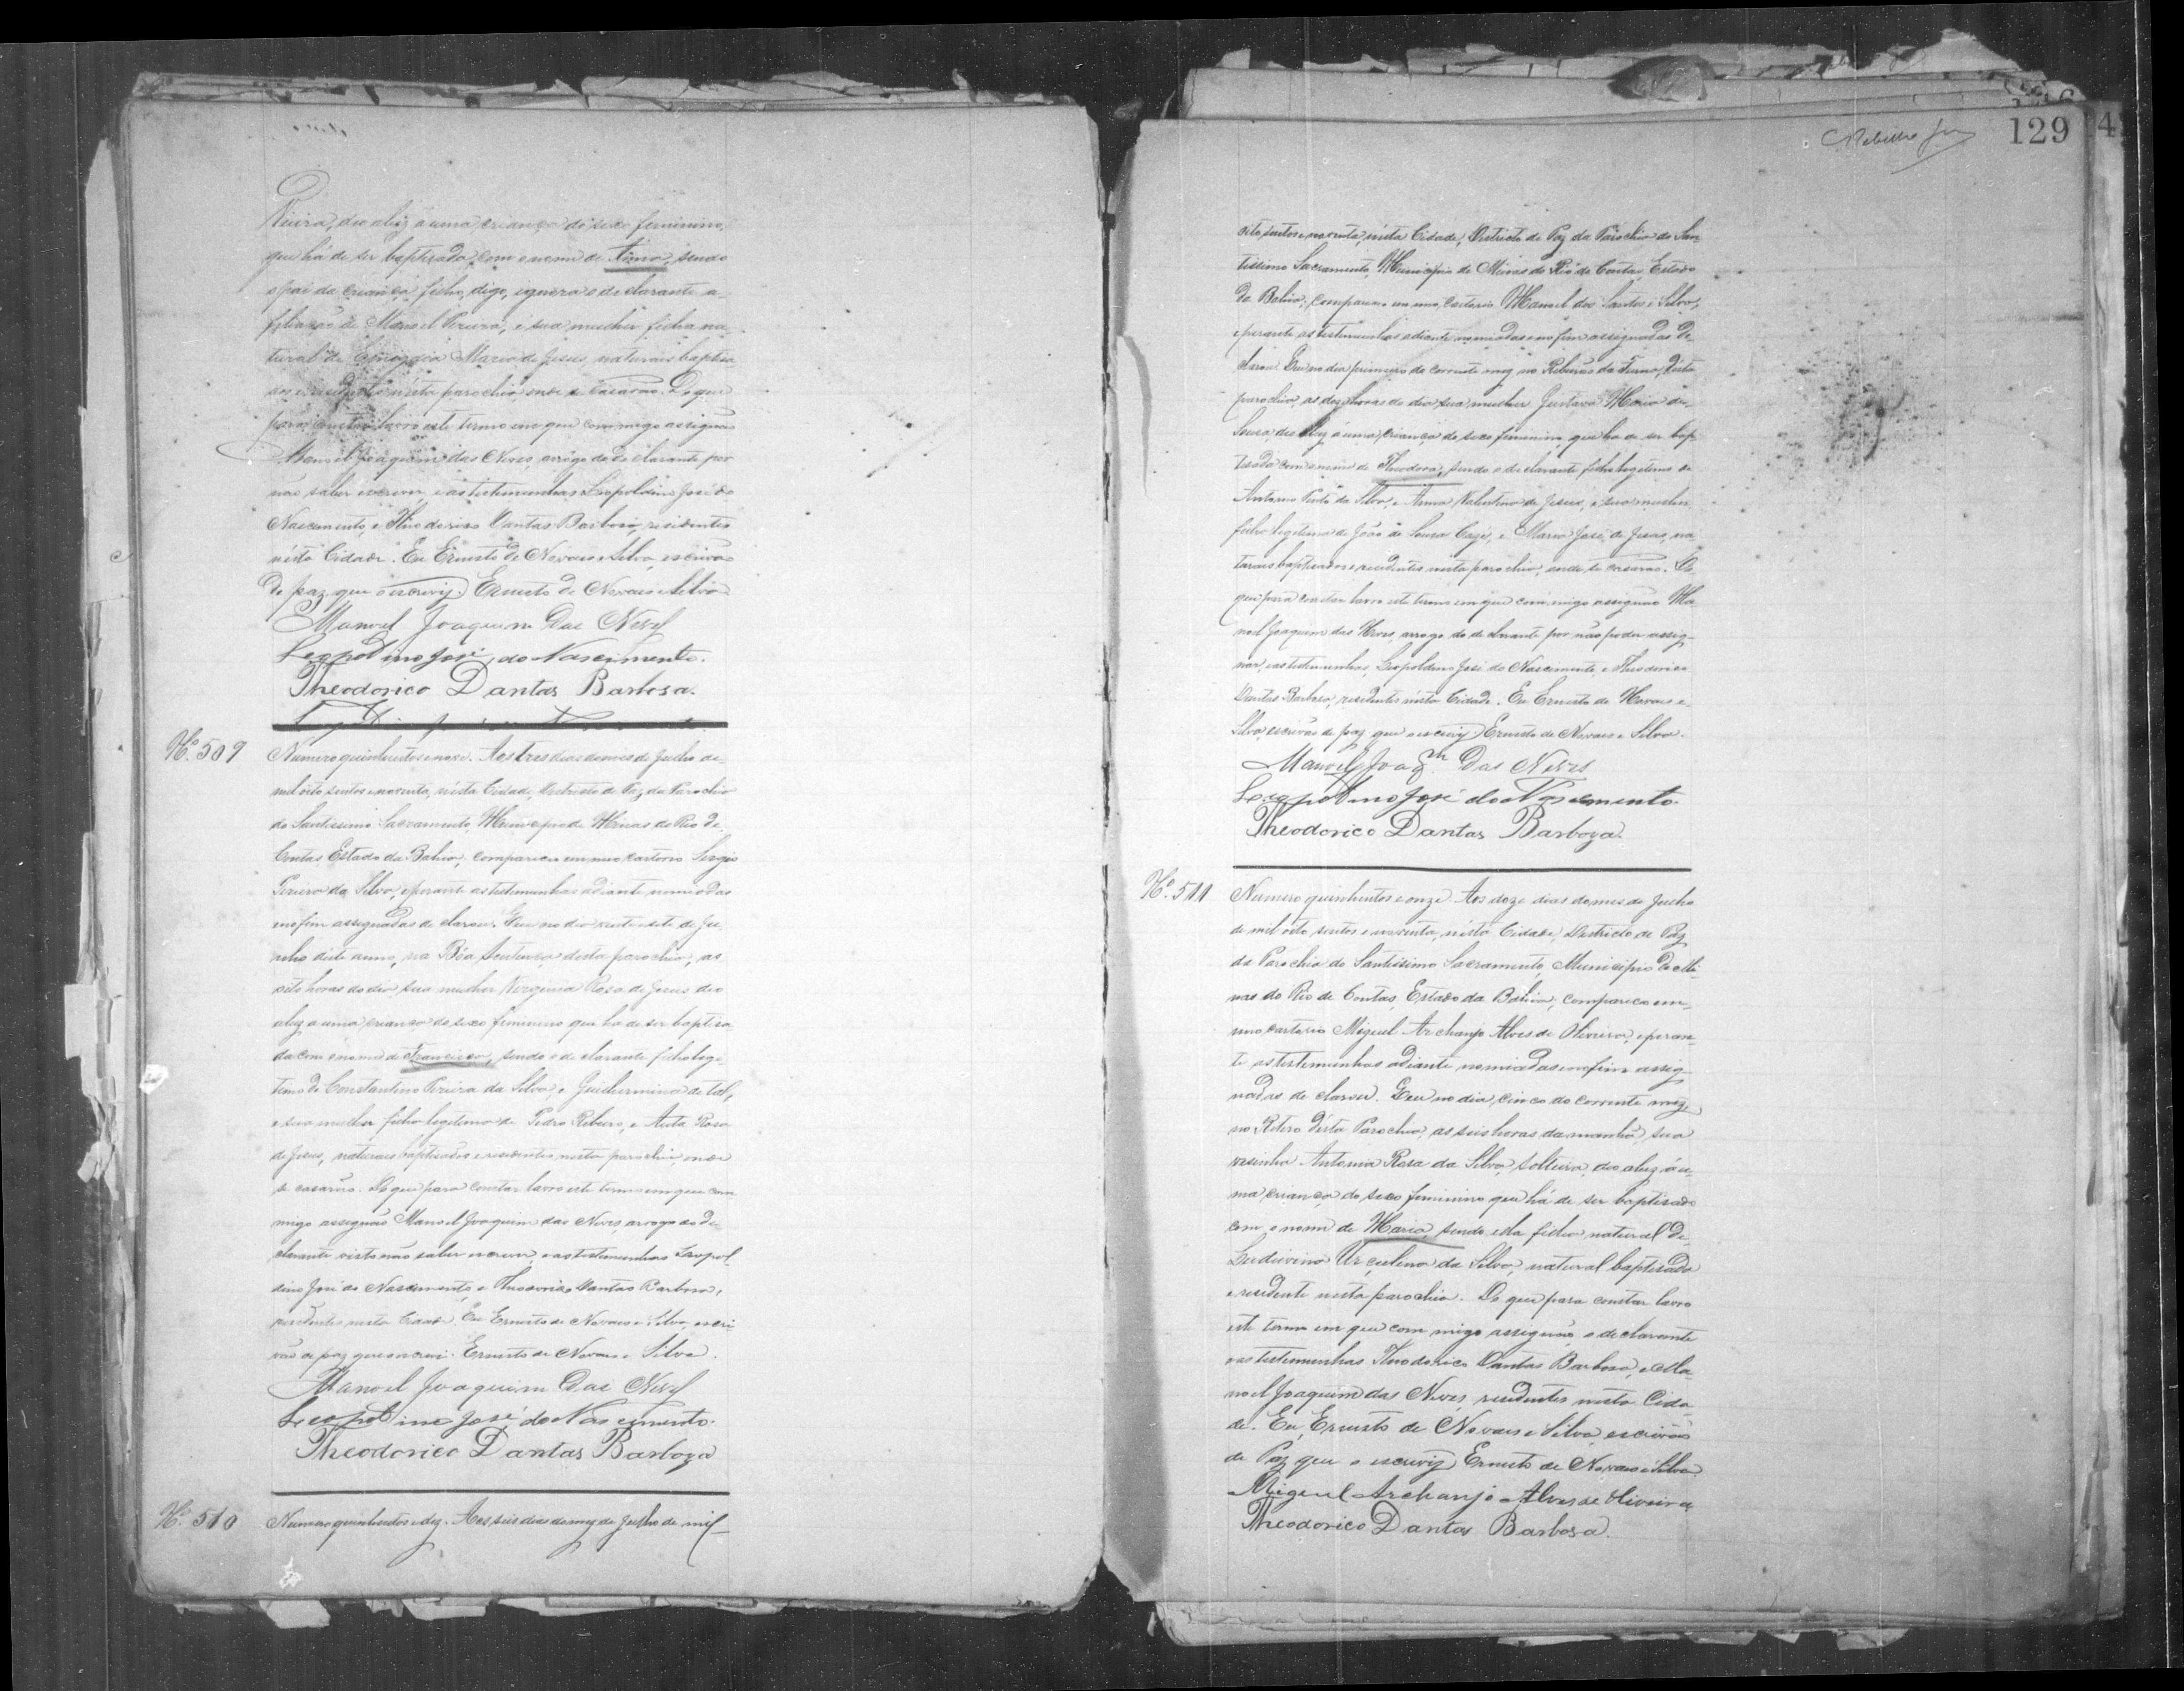 Pereira, deo aluz a uma criança do sexo feminino,
que há de ser baptisada com o nome de Anna, sendo
o pai da criança filho, digo, ignora o declarante a
filiação de Manoel Pereira, e sua mulher filha na-
tural de Maria de Jesus, naturais baptisa-
dos e residentes nésta parochia onde se casarão. Do que
para constar lavro este termo em que commigo assignão
Manoel Joaquim das Neves, arrogo do declarante por
não saber escrever, e as testimunhas Leopoldino José do
Nascimento, e Theodorico Dantas Barbosa, residentes
nésta Cidade. Eu Ernesto de Novaes e Silva, escrivão
de paz que o escrevy. Ernesto de Novaes e Silva
Manoel Joaquim Das Neves
Leopoldino José do Nascimento.
Theodorico Dantas Barbosa.
Nº 509 Numero quinhentos e nove. Aos tres dias do mes de Julho de
mil oito sentos e noventa, nésta Cidade, Destricto de Paz da Parochia
do Santissimo Sacramento, Municipio de Minas do Rio de
Contas Estado da Bahia, compareceu em meo cartorio Sergio
Pereira da Silva, e perante as testimunhas adiante nomiadas
e no fim assignadas declarou. Que no dia vinte e sete de Ju-
nho déste anno, na Bôa Sentença, désta parochia, as
oito horas do dia, sua mulher Virginia Rosa de Jesus deo
aluz a uma criança do sexo feminino que ha de ser baptisa-
da com o nome de Francisca, sendo o declarante filho lege-
timo de Constantino Pereira da Silva, e Guilhermina de tal,
e sua mulher filha legitima de Pedro Ribeiro, e Auta Rosa
de Jesus, naturais baptisados e residentes nesta parochia onde
se casarão. Do que para constar lavro este termo em que com
migo assignão Manoel Joaquim das Neves, arrogo do de-
clarante visto não saber escrever, e as testimunhas Leopol-
dino José do Nascimento, e Theodorico Dantas Barbosa,
residentes nesta Cidade. Eu Ernesto de Novaes e Silva, escri
vão de paz que escrevi. Ernesto de Novaes e Silva.
Manoel Joaquim Das Neves
Leopoldino José do Nascimento.
Theodorico Dantas Barboza
Nº 510 Numero quinhentos e dez. Aos seis dias do mez de Julho de mil
129
oito sentos e noventa, nésta Cidade, Destricto de Paz da Parochia do San
tissimo Sacramento, Municipio de Minas do Rio de Contas Estado
da Bahia, compareceu em meo Cartorio Manoel dos Santos e Silva,
e perante as testimunhas adiante nomiadas e no fim assignadas de-
clarou. Que no dia primeiro do corrente mez no Ribeirão da Furna, désta
parochia, as dez horas do dia sua mulher Gustava Maria de
Sousa, deo aluz a uma criança do sexo feminino, que ha de ser bap
tisada com o nome de Theodora, sendo o declarante filho legitimo de
Antonio Pinto da Silva, e Anna Valentina de Jesus, e sua mulher
filha legitima de João de Sousa e Maria José de Jesus, na
turais baptisados e residentes nesta parochia, onde se casarão. Do
que para constar lavro este termo em que commigo assignão Ma
noel Joaquim das Neves, arrogo do declarante por não poder assig-
nar, e as testimunhas, Leopoldino José do Nascimento, e Theodorico
Dantas Barbosa, residentes nésta Cidade. Eu Ernesto de Novaes e
Silva, escrivão de paz que o escrevy. Ernesto de Novaes e Silva.
Manoel Joaqm Das Neves
Leopoldino José do Nascimento.
Theodorico Dantas Barboza.
Nº 511 Numero quinhentos e onze. Aos doze dias do mes de Julho
de mil oito sentos e noventa, nésta Cidade, Destricto de Paz
da Parochia do Santissimo Sacramento, Municipio de Mi
nas do Rio de Contas, Estado da Bahia, compareceo em
meo cartorio Miguel Archanjo Alves de Oliveira, e peran-
te as testemunhas adiante nomiadas e no fim assig-
nadas declarou. Que no dia cinco do corrente mez
no Retiro désta Parochia, as seis horas da manhã, sua
vesinha Antonia Rosa da Silva, solteira, deo aluz á u-
ma criança do sexo feminino que há de ser baptisada
com o nome de Maria, sendo ella filha natural de
Ludivina Urculina da Silva, natural baptisada
e residente nesta parochia. Do que para constar lavro
este termo em que commigo assignão o declarante
e as testimunhas Theodorico Dantas Barbosa, e Ma-
noel Joaquim das Neves, residentes nesta Cida
de. Eu, Ernesto de Novaes e Silva escrivão
de Paz que o escrevy. Ernesto de Novaes e Silva
Miguel Archanjo Alves de Oliveira
Theodorico Dantas Barbosa.